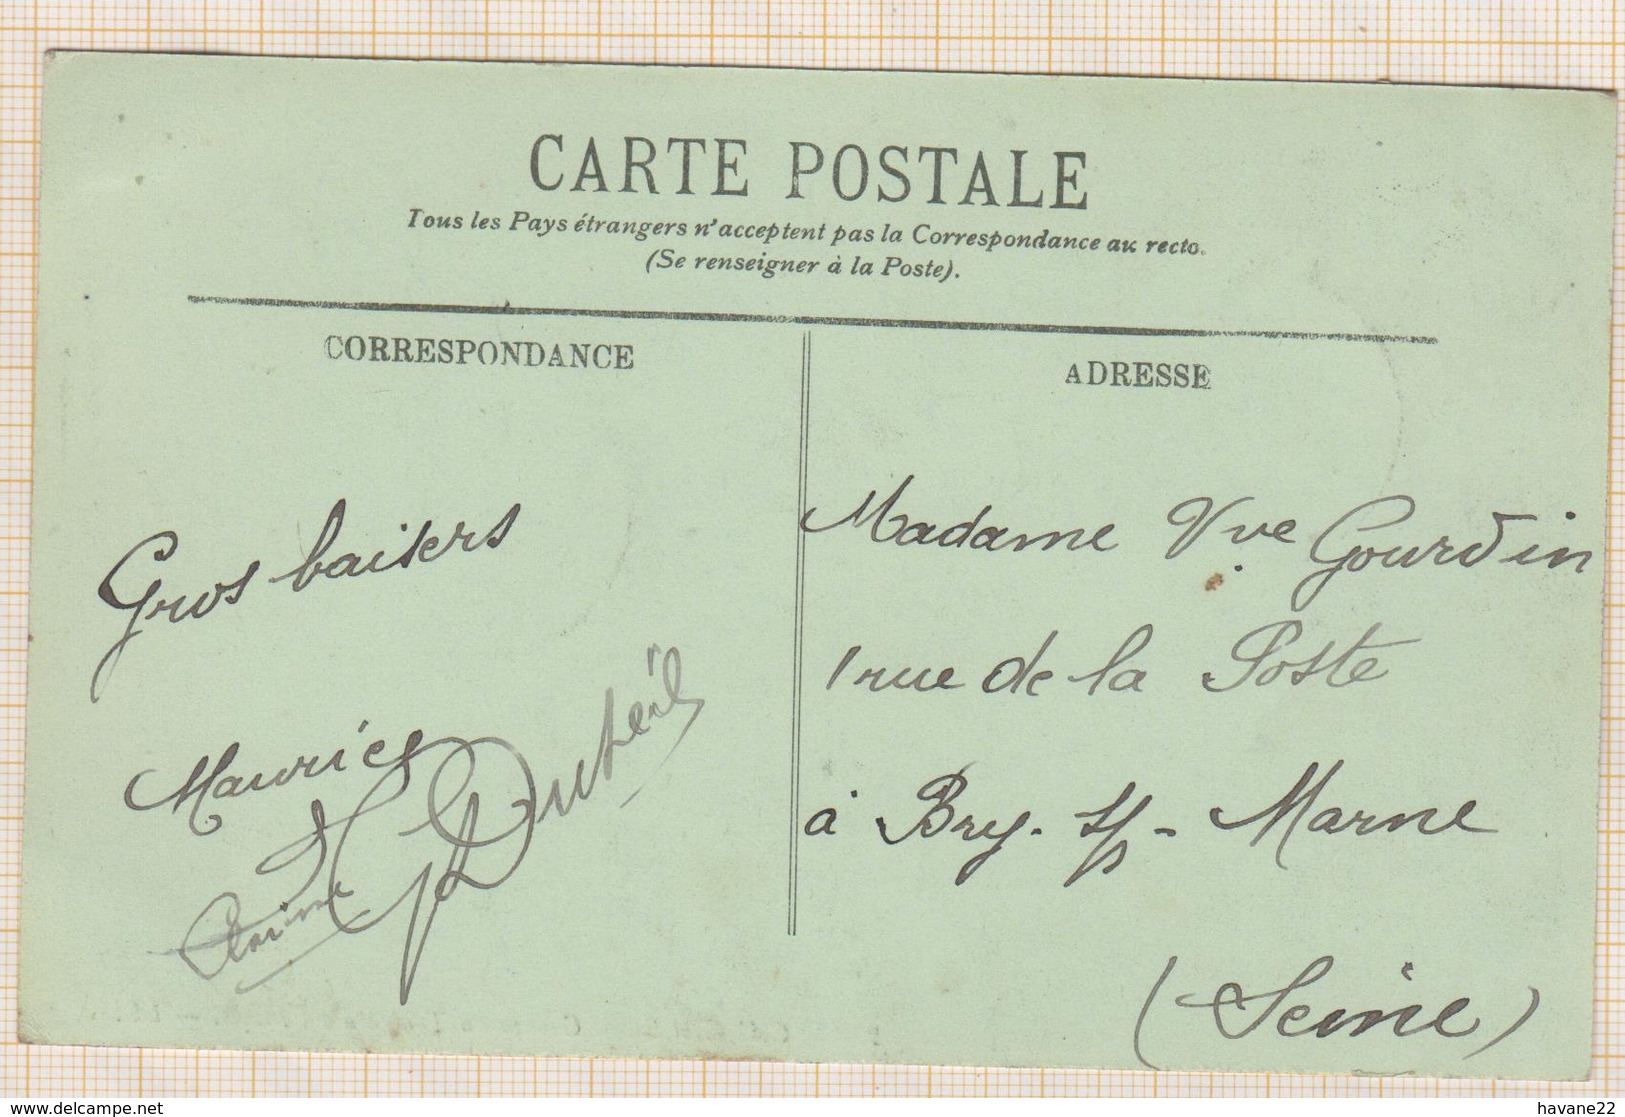 CARTE POSTALE
Tous les Pays étrangers n'acceptent pas la Correspondance au recto.
(Se renseigner à la Poste).
CORRESPONDANCE
Gros baisers
Maurice
ADRESSE
Madame Vve Gourdin
1 rue de la Poste
à Bry-s/-Marne
(Seine)
delcampe.net
havane22